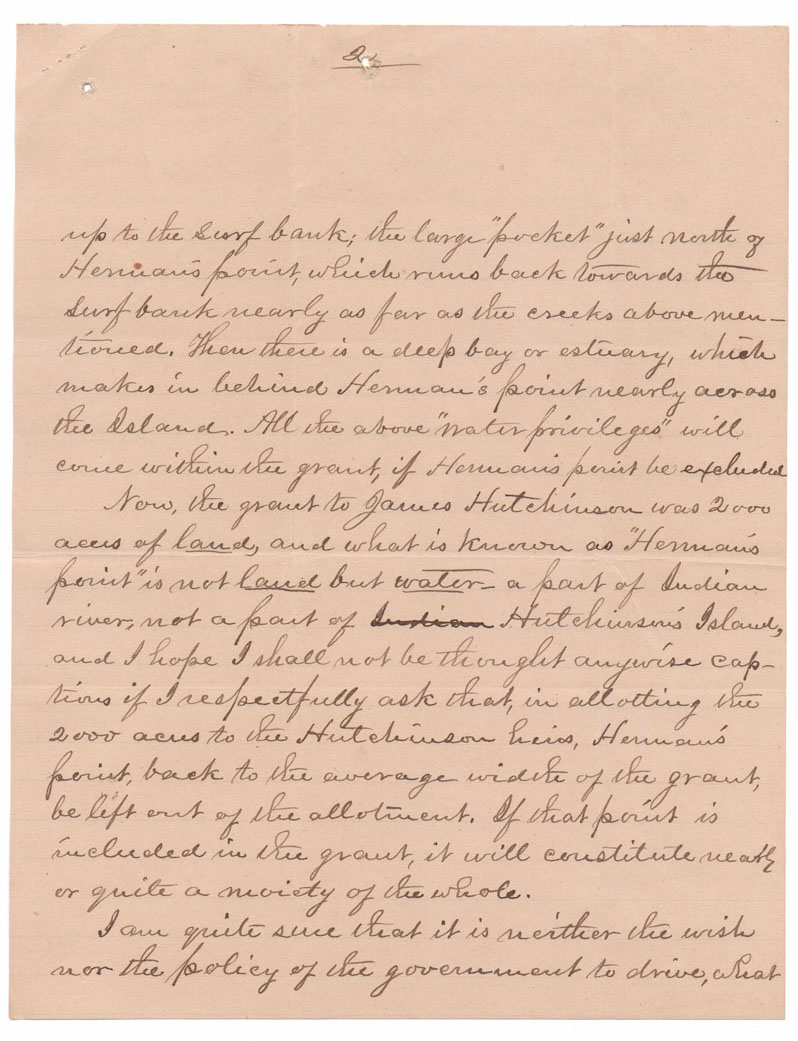 2
up to the surf bank; the large "pocket" just north of
Herman's point, which runs back towards the
surf bank nearly as far as the creeks above men-
tioned. Then there is a deep bay or estuary, which
makes in behind Herman's point nearly across
the Island. All the above "water privileges" will
come within the grant, if Herman's point be excluded
Now, the grant to James Hutchinson was 2000
acres of land, and what is known as "Herman's
point" is not land but water - a part of Indian
river, not a part of Indian Hutchinson's Island,
and I hope I shall not be thought anywise cap-
tious if I respectfully ask that, in allotting the
2000 acres to the Hutchinson heirs, Herman's
point, back to the average width of the grant,
be left out of the allotment. If that point is
included in the grant, it will constitute nearly
or quite a moiety of the whole.
I am quite sure that it is neither the wish
nor the policy of the government to drive, what